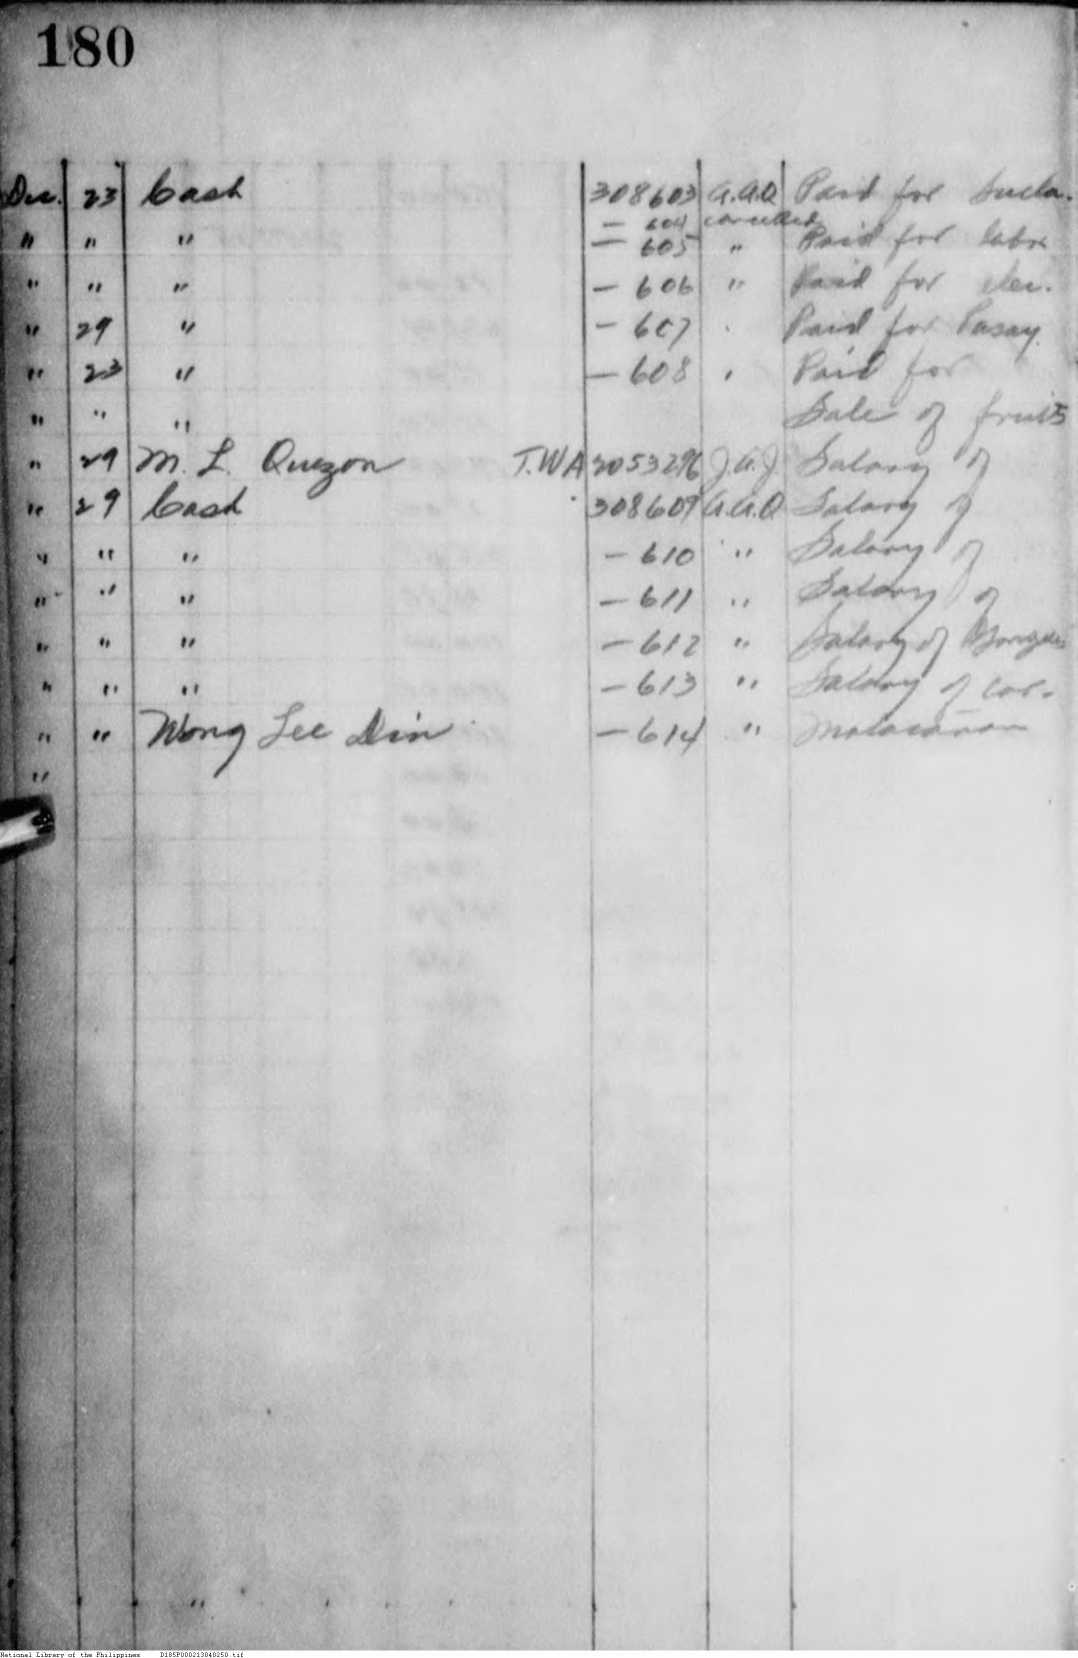 180
Dec. 23 Cash 308603 A.A.Q Paid for
— 604 cancelled
" " " — 605 " Paid for labor
" " " — 606 " Paid for elec.
" 29 " — 607 . Paid for Pasay.
" 23 " — 608 . Paid for
" " " Sale of fruits
" 29 M. L. Quezon T.W A 2053296 J.A.J. Salary of
" 29 Cash 308609 A.A.Q Salary of
" " " — 610 " Salary of
" " " — 611 " Salary of
" " " — 612 " Salary of
" " " — 613 " Salary of car.
" " Wong Lee Din — 614 " Malacañan
"
"
National Library of the Philippines D185P000213840250.tif